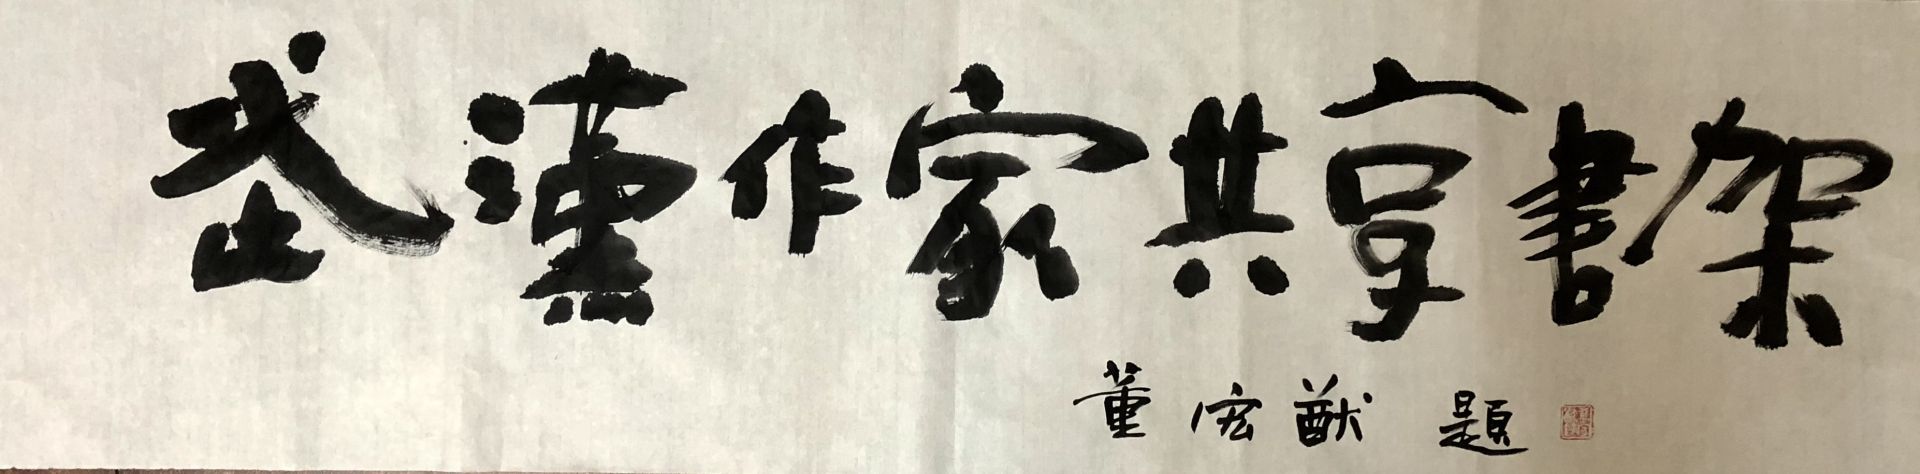 武漢作家共享書架
董宏猷 題